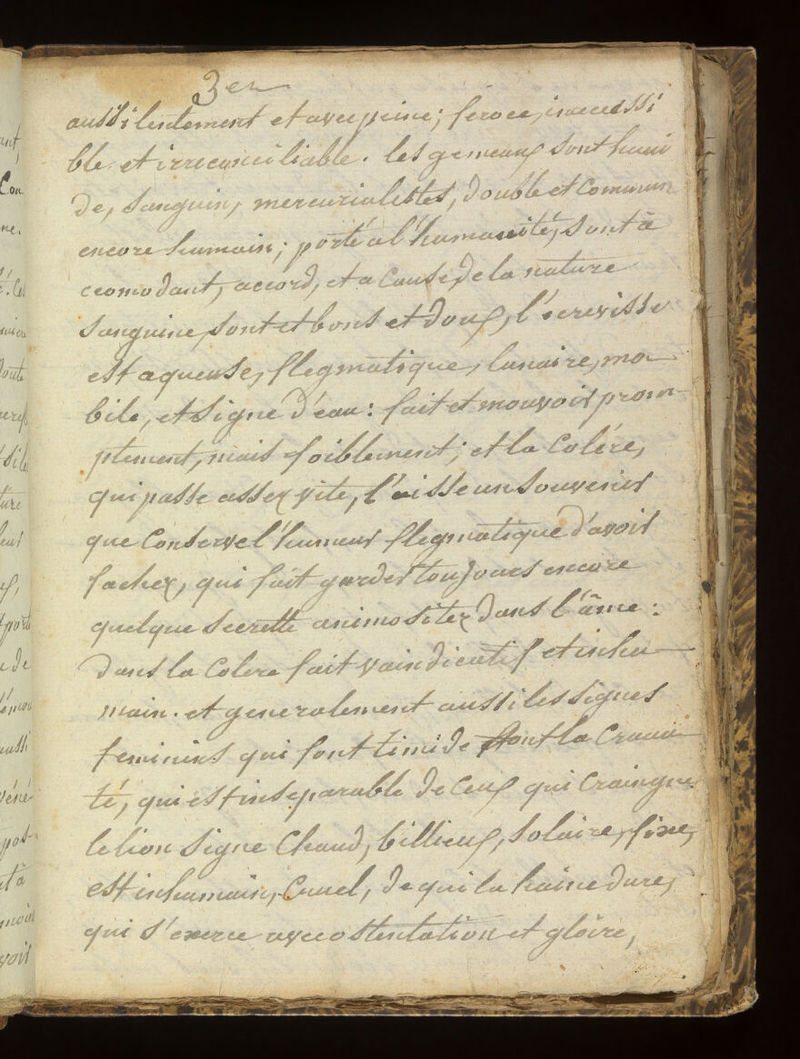 3er
aussi lentement et avec peine; feroce, inaccessi
ble et irreconciliable. les gemeaux sont humi
de, sanguin, mercurialistes, double et commun
encore humain; porté a l'humanité, sont à
ccomodant, accord, et a Cause de la nature
sanguine sont et bons et doux, l'écrevisse
est aqueuse, flegmatique, lunaire, mo
bile, et signe d'eau: fait et mouvoir prom
ptement, mais foiblement; et la Colére,
qui passe assez vite, l'aisse un souvenir
que Conserve l'humeur flegmatique d'avoir
fachez, qui fait garder toujours encore
quelque secrette animositez dans l'âme:
dans la Colere fait vaindicatif et inhu
main. et generalement aussi les signes
feminins qui font timide font la Cruau
té, qui est inseparable de Ceux qui Craingne
le lion signe Chaud, billieux, solaire, fixe,
est inhumain, Cruel, de qui la haine dure,
qui s'exerce avec ostentation et glôire,